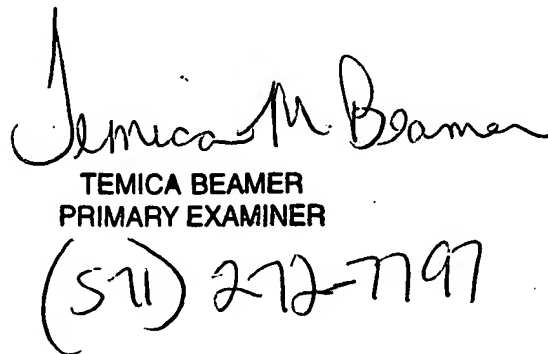 Temica M. Beamer
TEMICA BEAMER
PRIMARY EXAMINER
(571) 272-7797